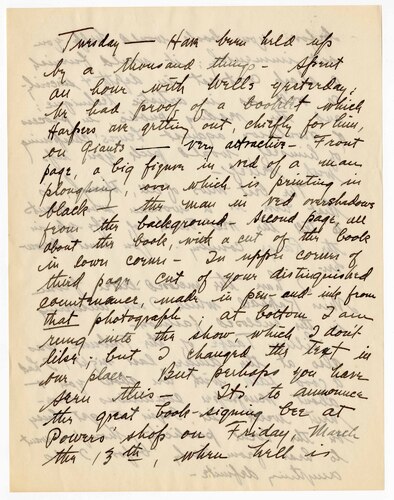 Tuesday — Have been held up
by a thousand things - Spent
an hour with Wells yesterday;
he had proof of a booklet which
Harpers are getting out, chiefly for him,
on Giants — very attractive - Front
page, a big figure in red of a man
ploughing, over which is printing in
black - the man in red overshadows
from the background - Second page, all
about the book, with a cut of the book
in lower corner - In upper corner of
third page cut of your distinguished
countenance, made in pen-and-ink from
that photograph; at bottom I am
rung into the show, which I don't
like; but I changed the text in
one place - But perhaps you have
seen this - Its to announce
the great book-signing bee at
Powers' shop on Friday, March
the 13th, when hell is